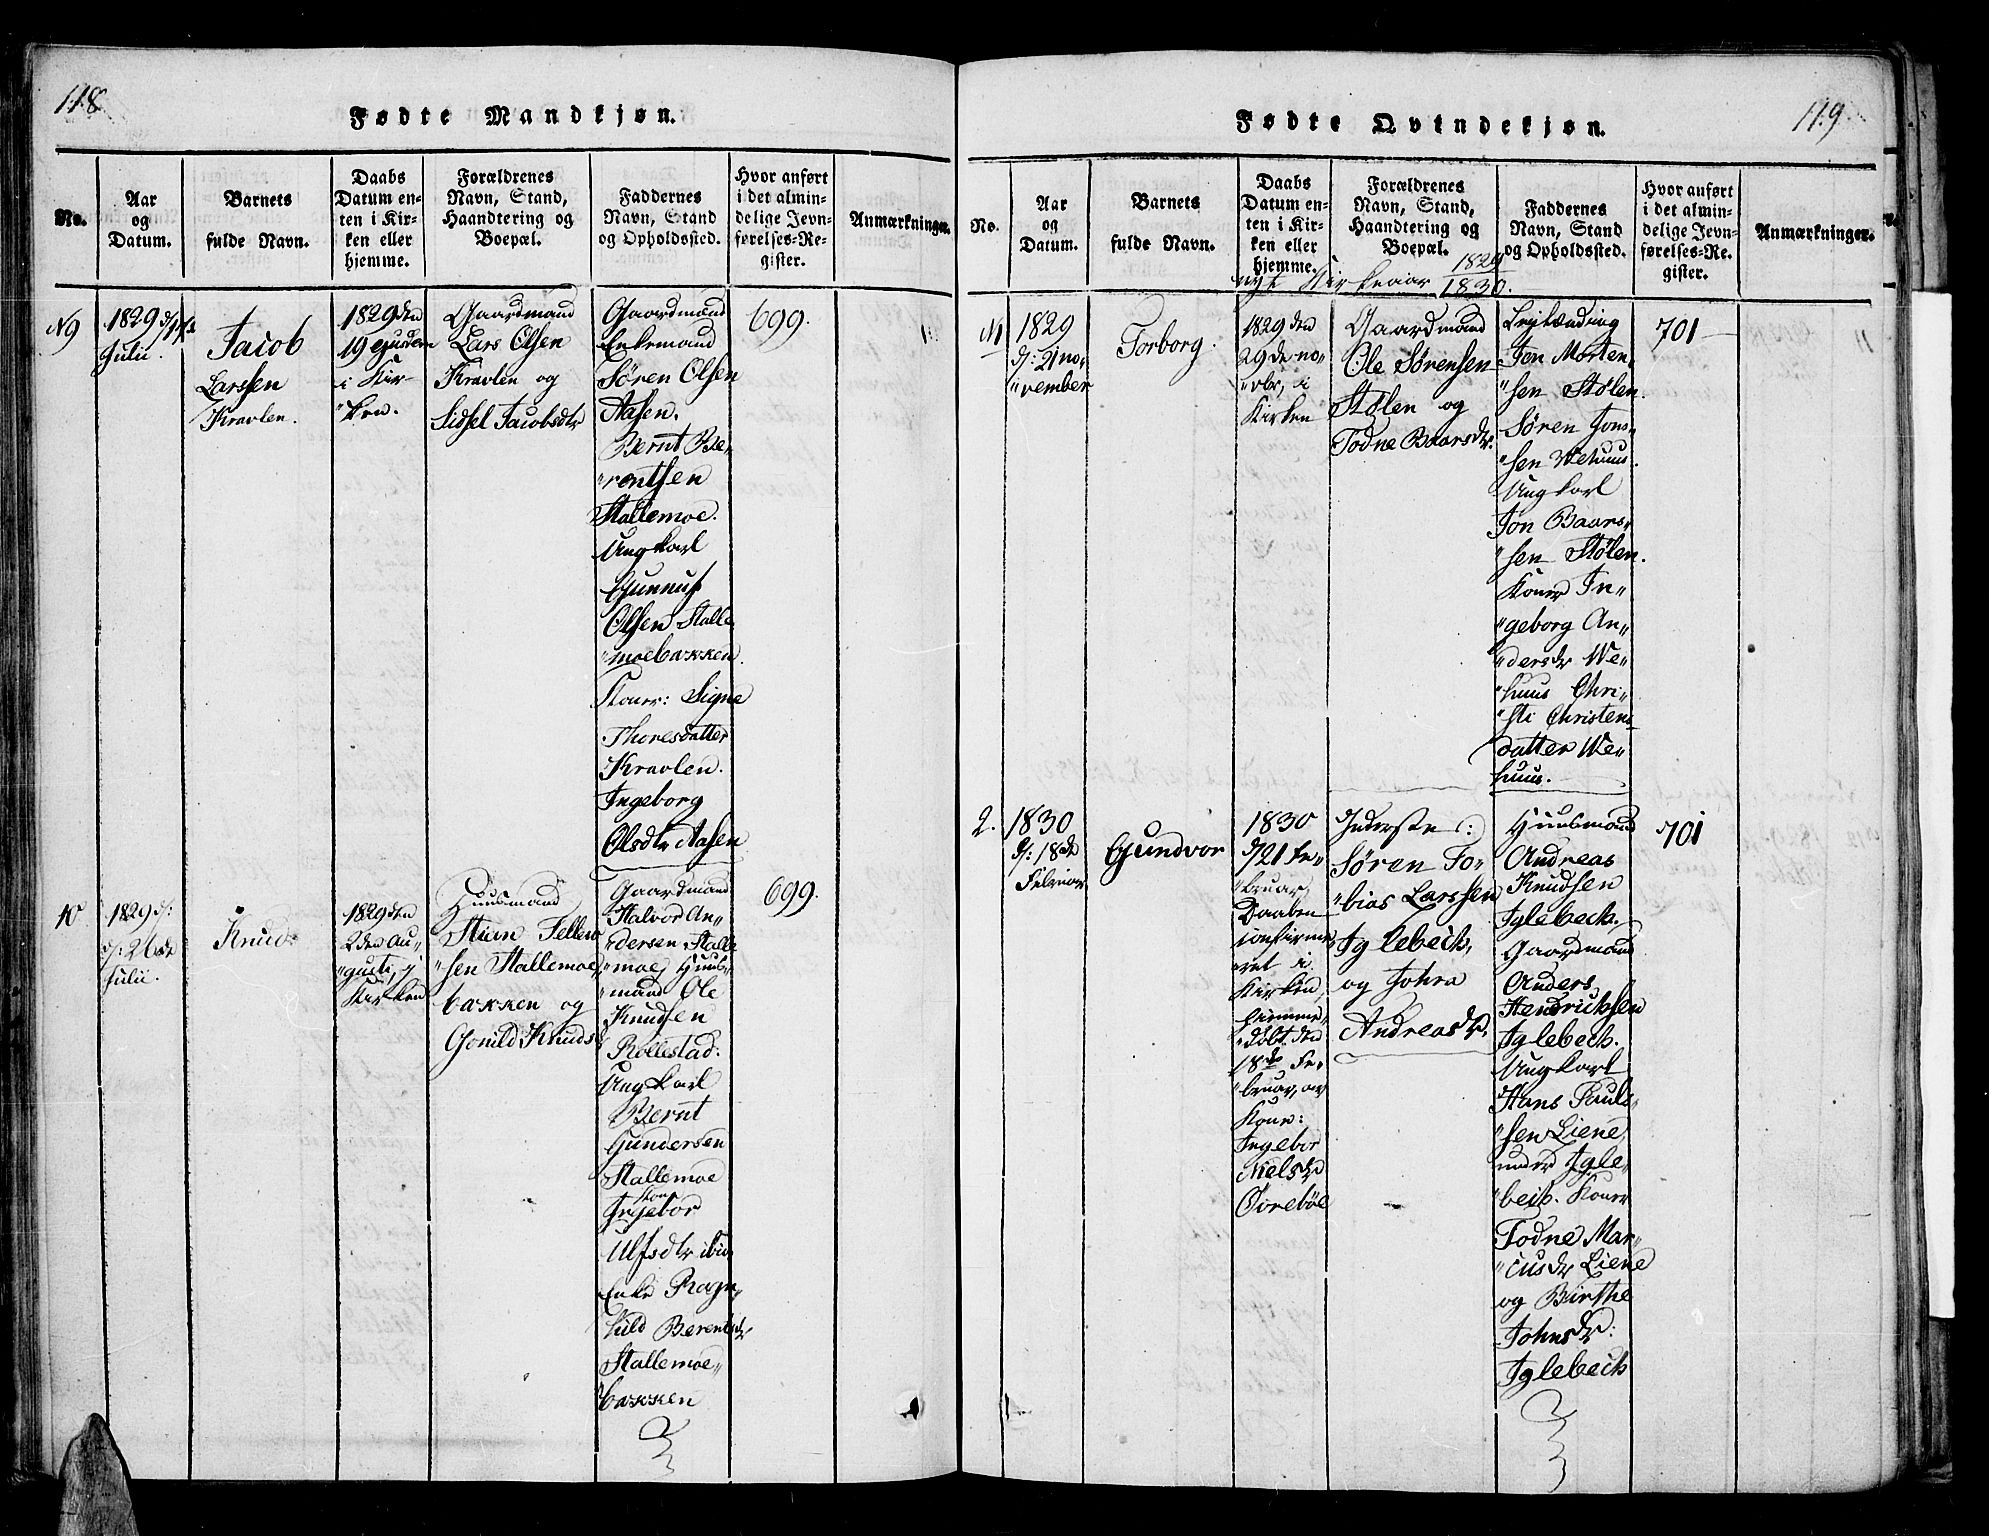 118
Fødte Mandkjøn.
No.
Aar
og
Datum.
Barnets
fulde Navn.
Daabs
Datum en-
ten i Kir-
ken eller
hjemme.
Forældrenes
Navn, Stand,
Haandtering og
Boepæl.
Faddernes
Navn, Stand
og Opholdssted.
Hvor anført
i det almin-
delige Jevn-
førelses-Re-
gister.
Anmærkninger.
N9
1829
Julii.
Jacob
Larssen
Kravlen.
1829 den
19 ejusdem
i Kir-
"ken.
Gaardmand
Lars Olsen
Kravlen og
Sidsel Jacobsdtr
Gaardmænd
Enkemand
Søren Olsen
Aasen.
Bernt Be-
"rentsen
Stallemoe.
Ungkarl
Gunnuf
Olsen Stalle
"moebakken.
Koner: Signe
Thoresdatter
Kravlen.
Ingeborg
Olsdtr Aasen
699.
10
1829 d:
26de
Julii.
Knud
1829 den
2den Au-
"gusti, i
Kirken
Huusmand
Stian Tellev
"sen Stallemoe
bakken og
Gonild Knuds
Gaardmand
Halvor An-
"dersen Stalle
"moe, Huus-
"mand Ole
Knudsen
Røllestad.
Ungkarl
Bernt
Gundersen
Stallemoe
Kone
Ingebor
Ulfsdtr ibid
Enke Ragn-
hild Berentsdr
Stallemoe-
"bakken
699.
119
Fødte Qvindekjøn.
No.
Aar
og
Datum.
Barnets
fulde Navn.
Daabs
Datum en-
ten i Kir-
ken eller
hjemme.
Forældrenes
Navn, Stand,
Haandtering og
Boepæl.
Faddernes
Navn, Stand
og Opholdssted.
Hvor anført
i det almin-
delige Jevn-
førelses-Re-
gister.
Anmærkninger.
nyt Kirkeaar 1829
1830.
N1
1829
d: 21 no-
"vember
Torborg.
1829 den
29de no-
"vbr, i
Kirken
Gaardmand
Ole Sørensen
Stølen og
Todne Baarsdr.
Leylænding
Jon Morten-
"sen Stølen.
Søren Jons-
"sen Wehuus.
Ungkarl
Jon Baars-
"sen Stølen.
Koner In-
"geborg An-
"dersdr We-
"huus Chri-
"sti Christens
datter We-
huus.
701
2.
1830
d: 18de
Februar
Gundvor
1830
d/21 Fe-
"bruar,
Daaben
confirme-
"ret i
Kirken,
hjemme-
"døbt den
18de Fe-
"bruar, av
Kone:
Ingebor
Nielsdr
Øvrebøe
Inderste:
Søren To-
"bias Larssen
Iglebeck,
og Johra
Andreasdr.
Huusmand
Andreas
Knudsen
Iglebeck.
Gaardmand
Anders
Hendrichsen
Iglebeck.
Ungkarl
Hans Pauls-
"sen Liene
under Igle-
"beck. Koner
Todne Mar-
"cusdr Liene
og Birthe
Johnsdr.
Iglebeck
701